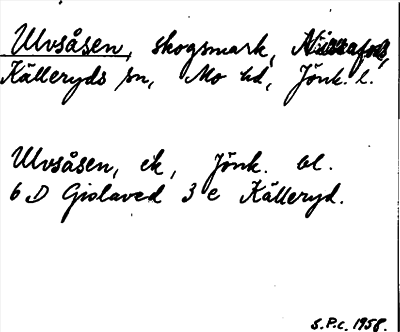 Ulvsåsen, skogsmark, Nissafors,
Källeryds sn, Mo hd, Jönk. l.
Ulvsåsen, ek, Jönk. bl.
6 D Gislaved 3 e Källeryd.
S.P.c. 1958.